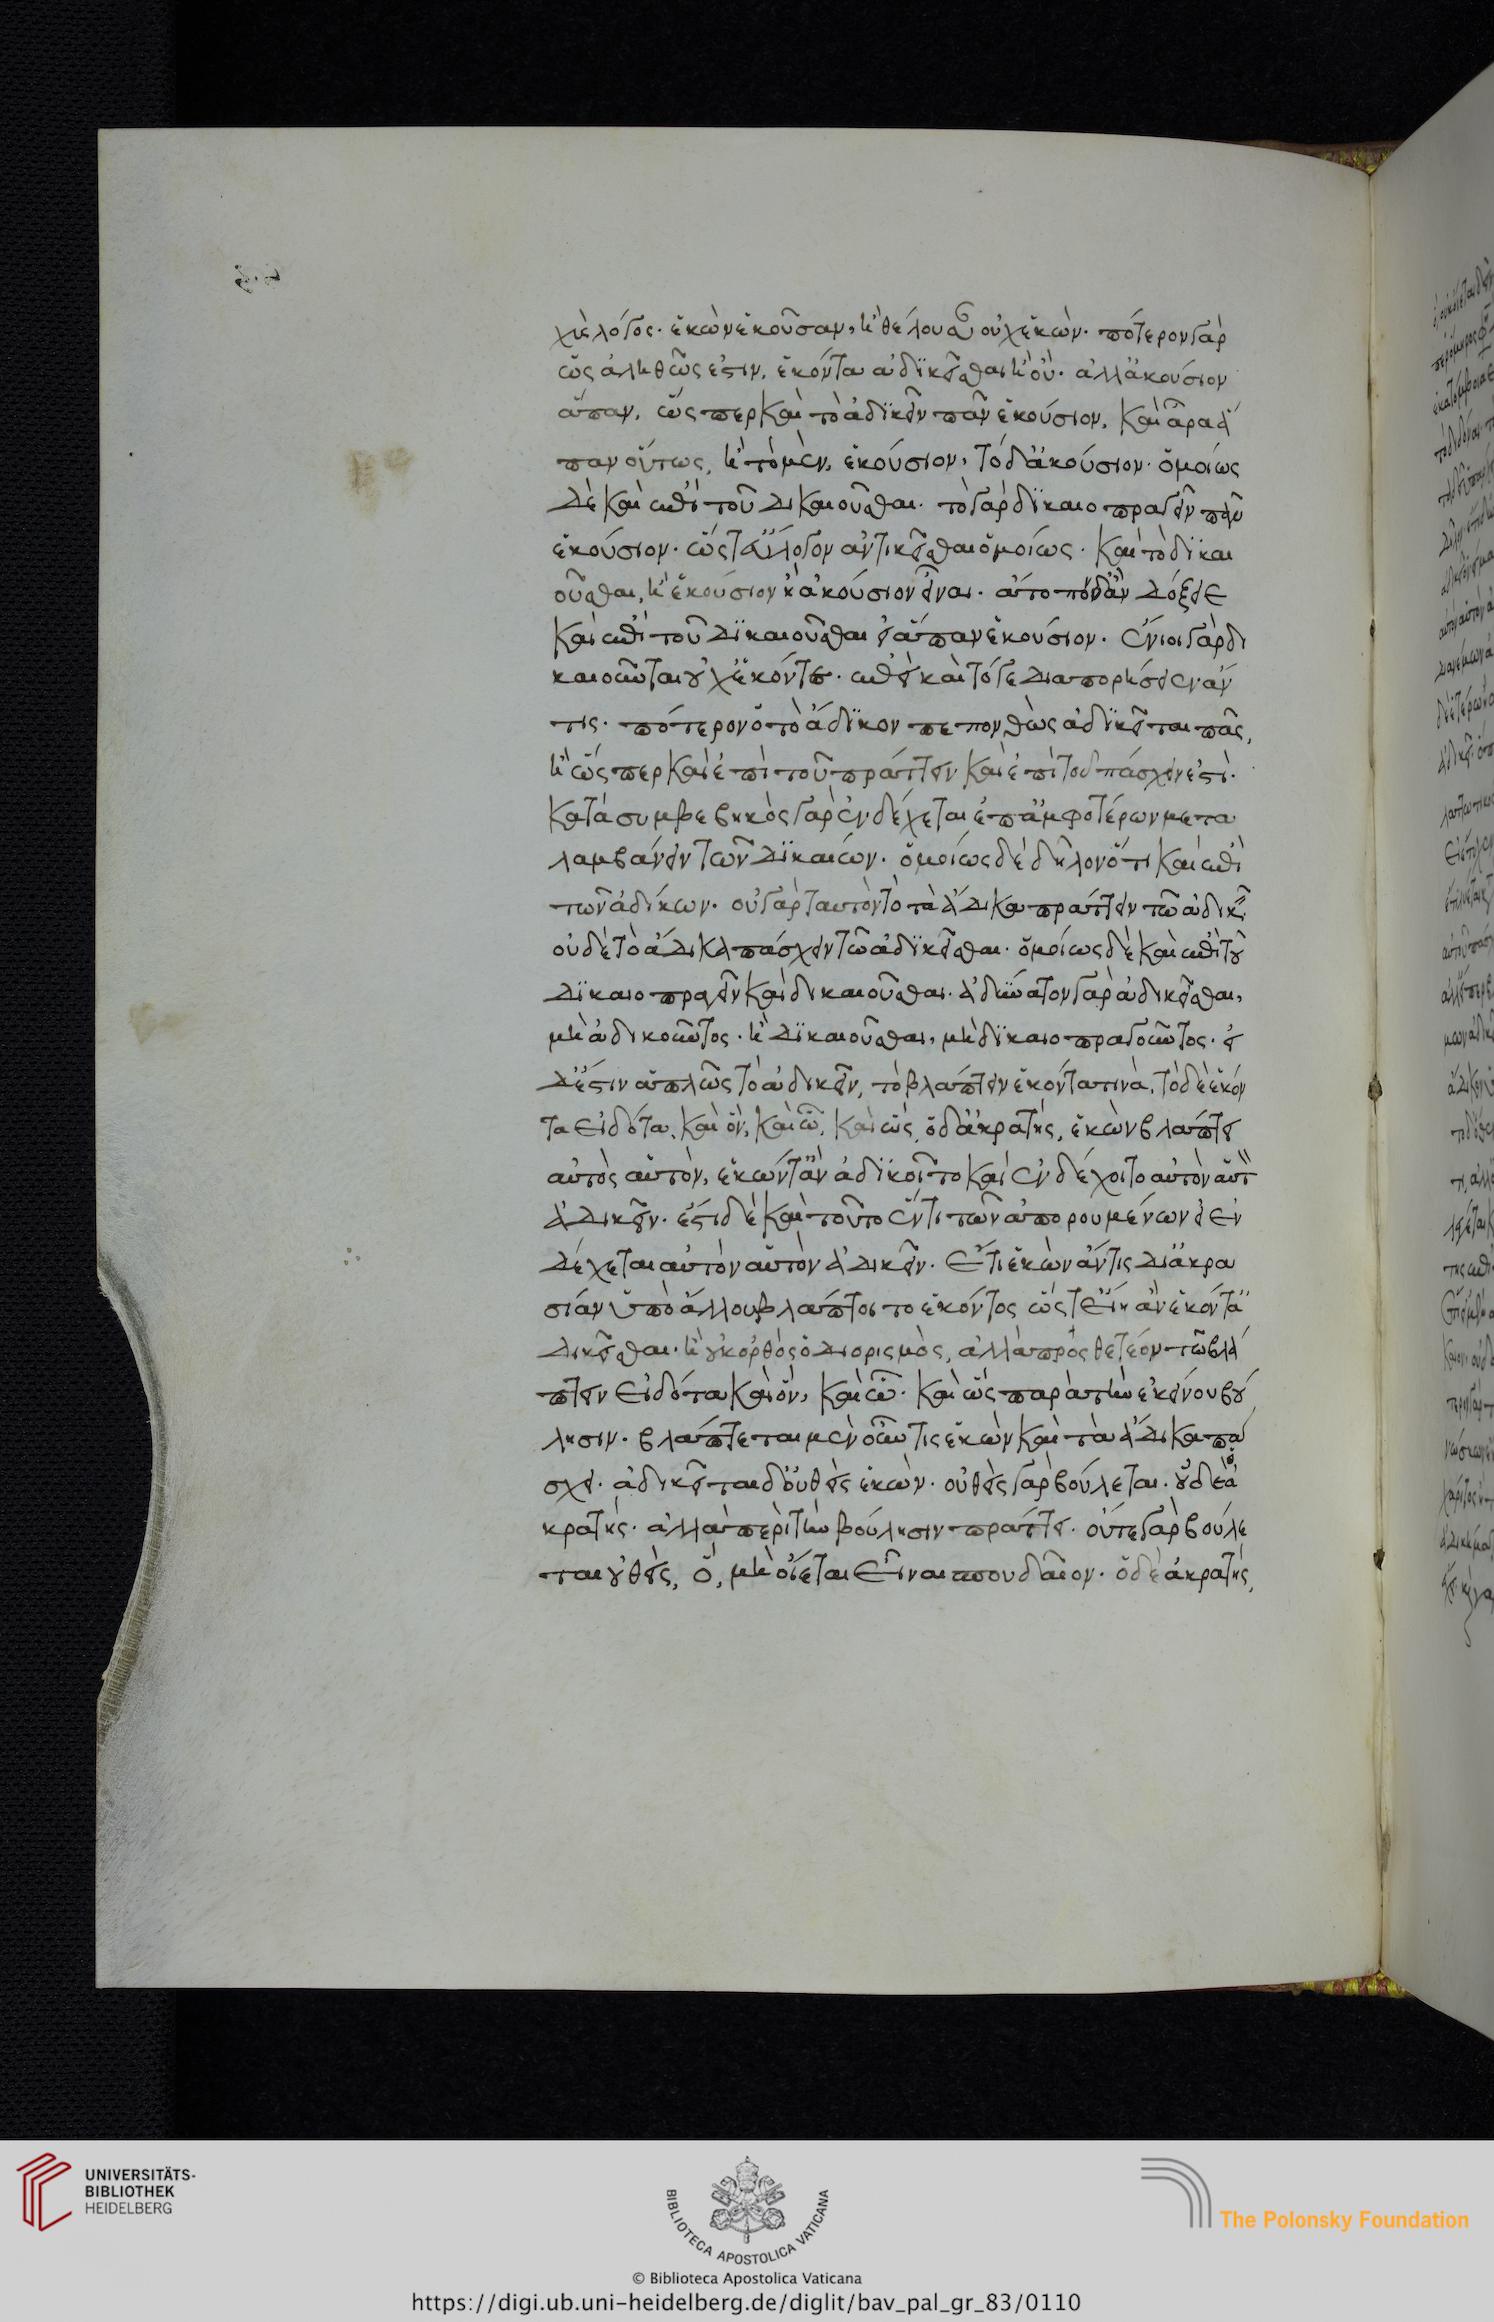 χὺς λόγος. ἑκὼν ἑκοῦσαν, ἢ θέλουσαν οὐχ ἑκών. πότερον γὰρ
ὡς ἀληθῶς ἐστιν, ἑκόντα ἀδικεῖσθαι ἢ οὔ. ἀλλ' ἀκούσιον
ἅπαν, ὥσπερ καὶ τὸ ἀδικεῖν πᾶν ἑκούσιον, καὶ ἆρα ἅ
παν οὕτως, ἢ τὸ μὲν, ἑκούσιον, τὸ δ' ἀκούσιον. ὁμοίως
δὲ καὶ ἐπὶ τοῦ δικαιοῦσθαι. τὸ γὰρ δικαιοπραγεῖν πᾶν
ἑκούσιον. ὥστ' εὔλογον ἀντικεῖσθαι ὁμοίως. καὶ τὸ δικαι
οῦσθαι, ἢ ἑκούσιον ἢ ἀκούσιον εἶναι. ἄτοπον δ' ἂν δόξειε
καὶ ἐπὶ τοῦ δικαιοῦσθαι εἰ ἅπαν ἑκούσιον. ἔνιοι γὰρ δι
καιοῦνται οὐχ ἑκόντες. ἐπεὶ καὶ τόγε διαπορήσειεν ἄν
τις. πότερον ὁ τὸ ἄδικον πεπονθὼς ἀδικεῖται πᾶς,
ἢ ὥσπερ καὶ ἐπὶ τοῦ πράττειν καὶ ἐπὶ τοῦ πάσχειν ἐστί.
κατὰ συμβεβηκὸς γὰρ ἐνδέχεται ἐπ' ἀμφοτέρων μετα
λαμβάνειν τῶν δικαίων. ὁμοίως δὲ δῆλον ὅτι καὶ ἐπὶ
τῶν ἀδίκων. οὐ γὰρ ταυτὸν τὸ τὰ ἄδικα πράττειν τῷ ἀδικεῖν
οὐδὲ τὸ ἄδικα πάσχειν τῷ ἀδικεῖσθαι. ὁμοίως δὲ καὶ ἐπὶ τοῦ
δικαιοπραγεῖν καὶ δικαιοῦσθαι. ἀδύνατον γὰρ ἀδικεῖσθαι,
μὴ ἀδικοῦντος. ἢ δικαιοῦσθαι, μὴ δικαιοπραγοῦντος. εἰ
δ' ἐστιν ἁπλῶς τὸ ἀδικεῖν, τὸ βλάπτειν ἑκόντα τινὰ, τὸ δὲ ἑκόν
τα εἰδότα, καὶ ὃν, καὶ ᾧ, καὶ ὥς, ὁ δ' ἀκρατὴς, ἑκὼν βλάπτει
αὐτὸς αὑτὸν, ἑκών τ' ἂν ἀδικοῖτο καὶ ἐνδέχοιτο αὐτὸν αὑτὸν
ἀδικεῖν. ἔστι δὲ καὶ τοῦτο ἕν τι τῶν ἀπορουμένων εἰ ἐν
δέχεται αὐτὸν αὑτὸν ἀδικεῖν. ἔτι ἑκὼν ἄν τις δι' ἀκρα
σίαν ὑπὸ ἄλλου βλάπτοιτο ἑκόντος ὥστ' εἴη ἂν ἑκόντ' ἀ
δικεῖσθαι. ἢ οὐκ ὀρθὸς ὁ διορισμὸς, ἀλλὰ προσθετέον τῷ βλά
πτειν εἰδότα καὶ ὃν, καὶ ᾧ. καὶ ὣς παρὰ τὴν ἐκείνου βού
λησιν. βλάπτεται μὲν οὖν τις ἑκὼν καὶ τὰ ἄδικα πά
σχει. ἀδικεῖται δ' οὐθεὶς ἑκών. οὐθεὶς γὰρ βούλεται. οὐδὲ ὁ ἀ
κρατής. ἀλλὰ περὶ τὴν βούλησιν πράττει. οὔτε γὰρ βούλε
ται οὐθεὶς, ὃ, μὴ οἴεται εἶναι σπουδαῖον. ὁ δὲ ἀκρατὴς,
UNIVERSITÄTS-
BIBLIOTHEK
HEIDELBERG
BIBLIOTECA APOSTOLICA VATICANA
The Polonsky Foundation
© Biblioteca Apostolica Vaticana
https://digi.ub.uni-heidelberg.de/diglit/bav_pal_gr_83/0110